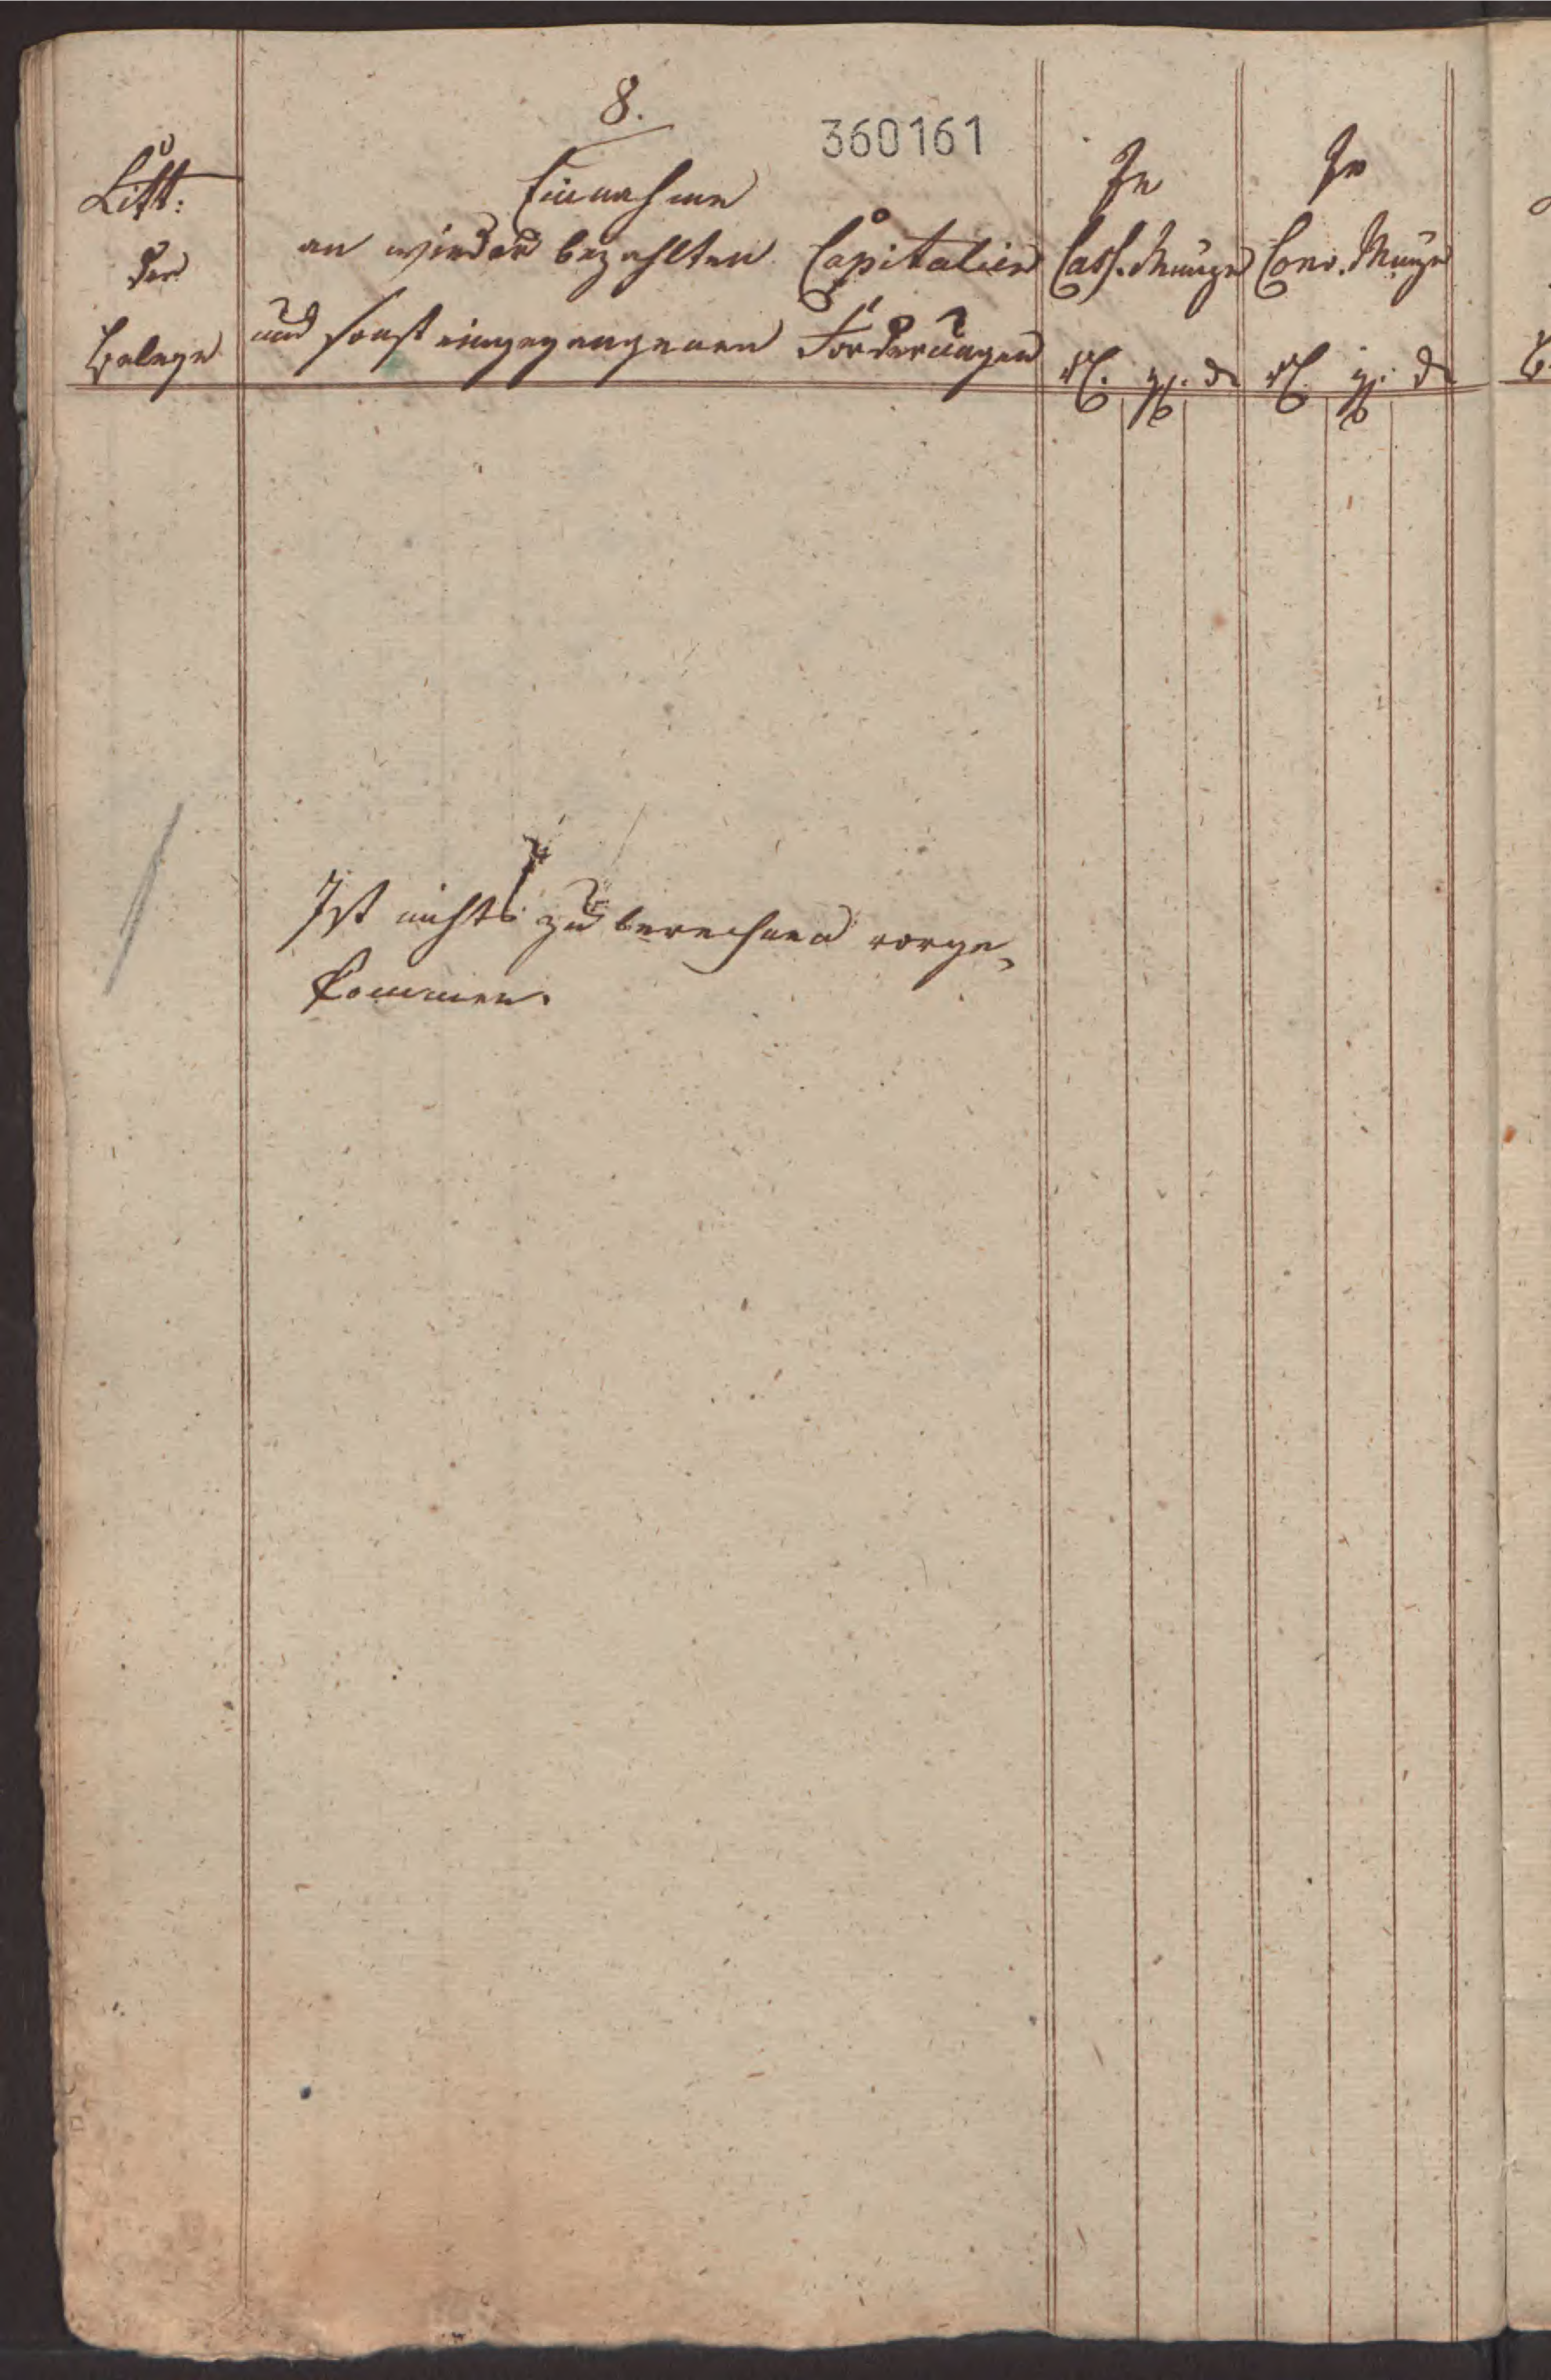 8.
360161
Litt:
der
Belege
Einnahme
an wieder bezahlten Capitalien
und sonst eingegangenen Forderungen
In
Cass. Münze
rt. gg. d
In
Conv. Münze
rt. gg. d
Ist nichts zu berechnen vorge-
kommen.